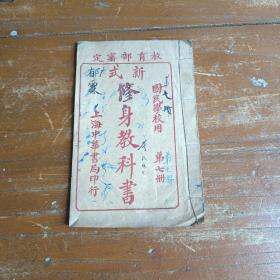 教育部審定
國民學校用
第七冊
新式
修身教科書
上海中華書局印行